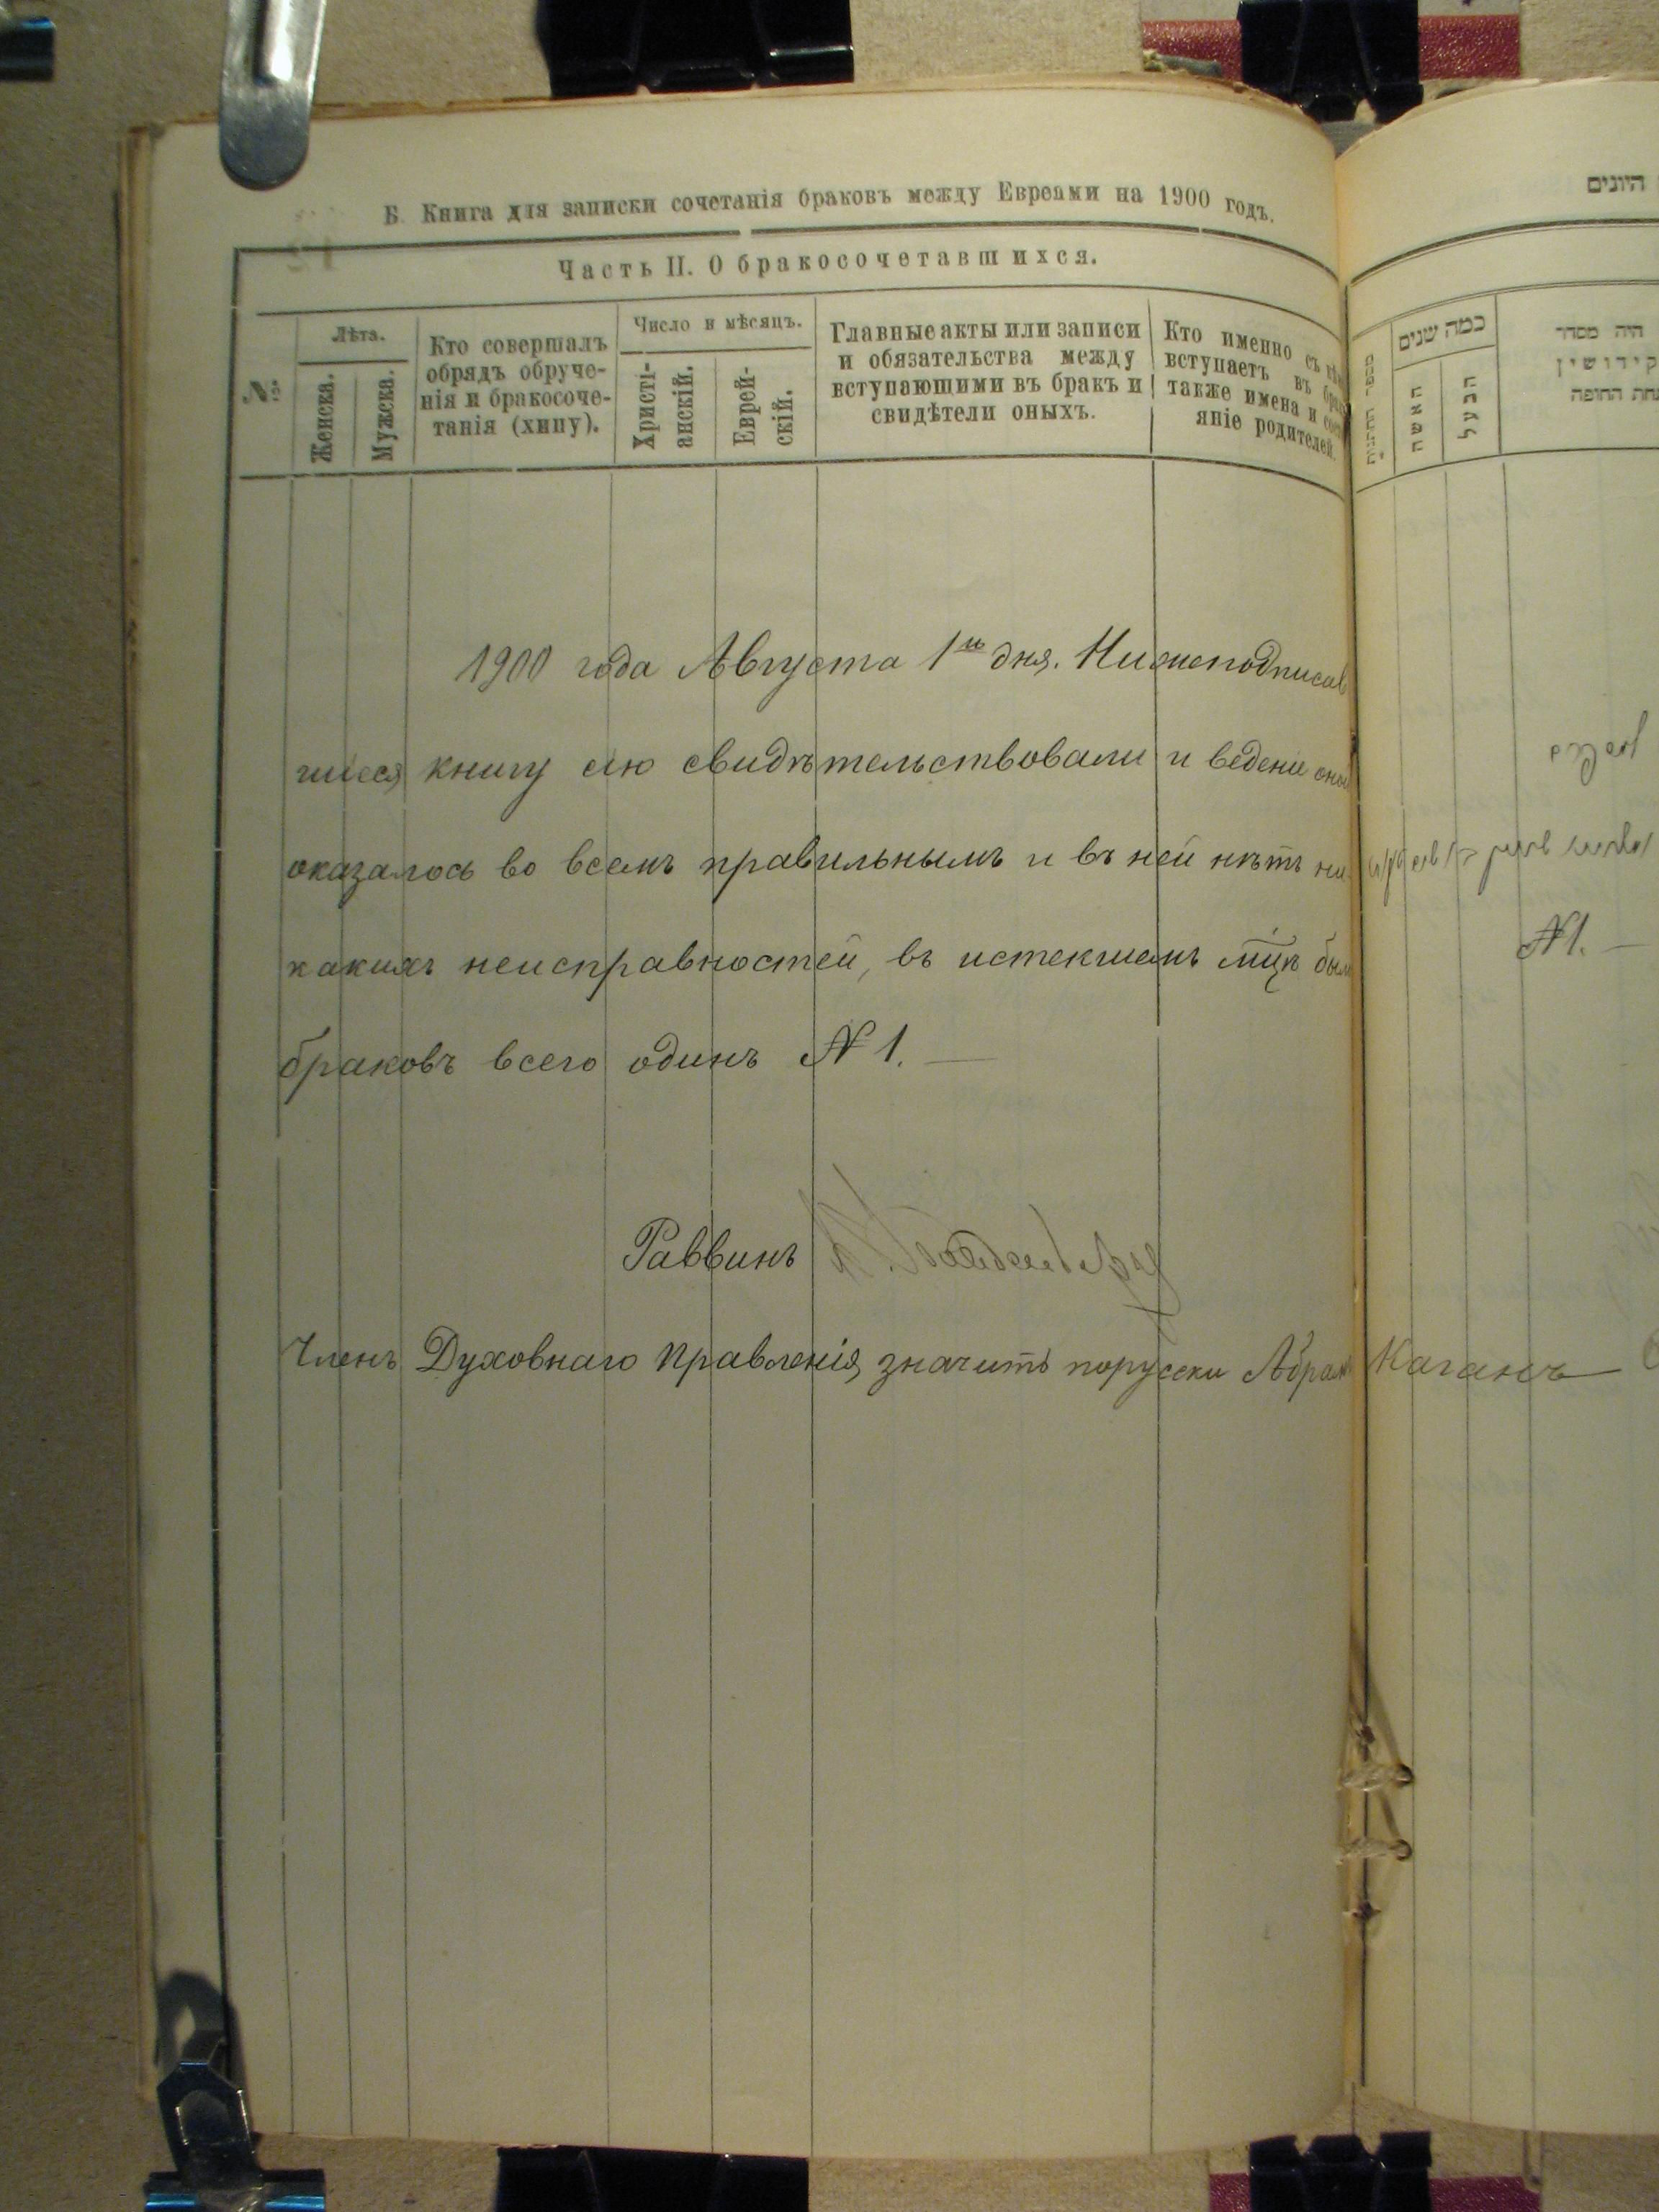 Б. Книга для записки сочетанія браковъ между Евреами на 1900 годъ.
Часть II. О бракосочетавшихся.
№
Лѣта.
Женска.
Мужска.
Кто совершалъ
обрядъ обруче-
нія и бракосоче-
танія (хипу).
Число и мѣсяцъ.
Христі-
анскій.
Еврей-
скій.
Главные акты или записи
и обязательства между
вступающими въ бракъ и
свидѣтели оныхъ.
Кто именно съ
вступаетъ въ
также имена и
яніе родителей.
1900 года Августа 1го дня. Нижеподписав
шіеся книгу сію свидѣтельствовали и веденіе
оказалось во всемъ правильнымъ и въ ней нѣтъ ни
какихъ неисправностей, въ истекшемъ мцѣ
браковъ всего одинъ №1. —
Раввинъ
Членъ Духовнаго Правленія, значитъ порусски Абрам Каганъ
היונים
כמה שנים
האשה
הבעל
היה מסדר
קידושין
תחת החופה
№1. —